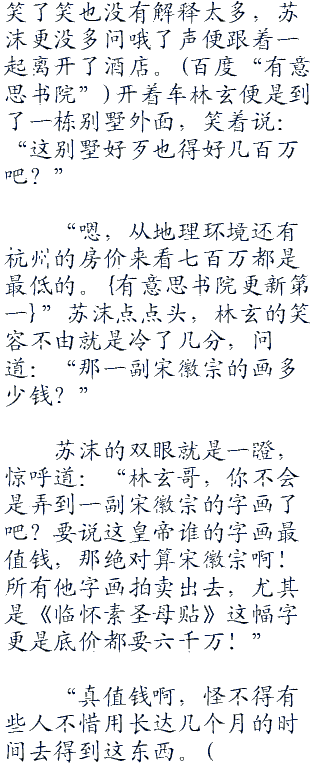 笑了笑也没有解释太多，苏
沫更没多问哦了声便跟着一
起离开了酒店。（百度“有意
思书院”）开着车林玄便是到
了一栋别墅外面，笑着说：
“这别墅好歹也得好几百万
吧？”
“嗯，从地理环境还有
杭州的房价来看七百万都是
最低的。{有意思书院更新第
一}”苏沫点点头，林玄的笑
容不由就是冷了几分，问
道：“那一副宋徽宗的画多
少钱？”
苏沫的双眼就是一瞪，
惊呼道：“林玄哥，你不会
是弄到一副宋徽宗的字画了
吧？要说这皇帝谁的字画最
值钱，那绝对算宋徽宗啊！
所有他字画拍卖出去，尤其
是《临怀素圣母贴》这幅字
更是底价都要六千万！”
“真值钱啊，怪不得有
些人不惜用长达几个月的时
间去得到这东西。（